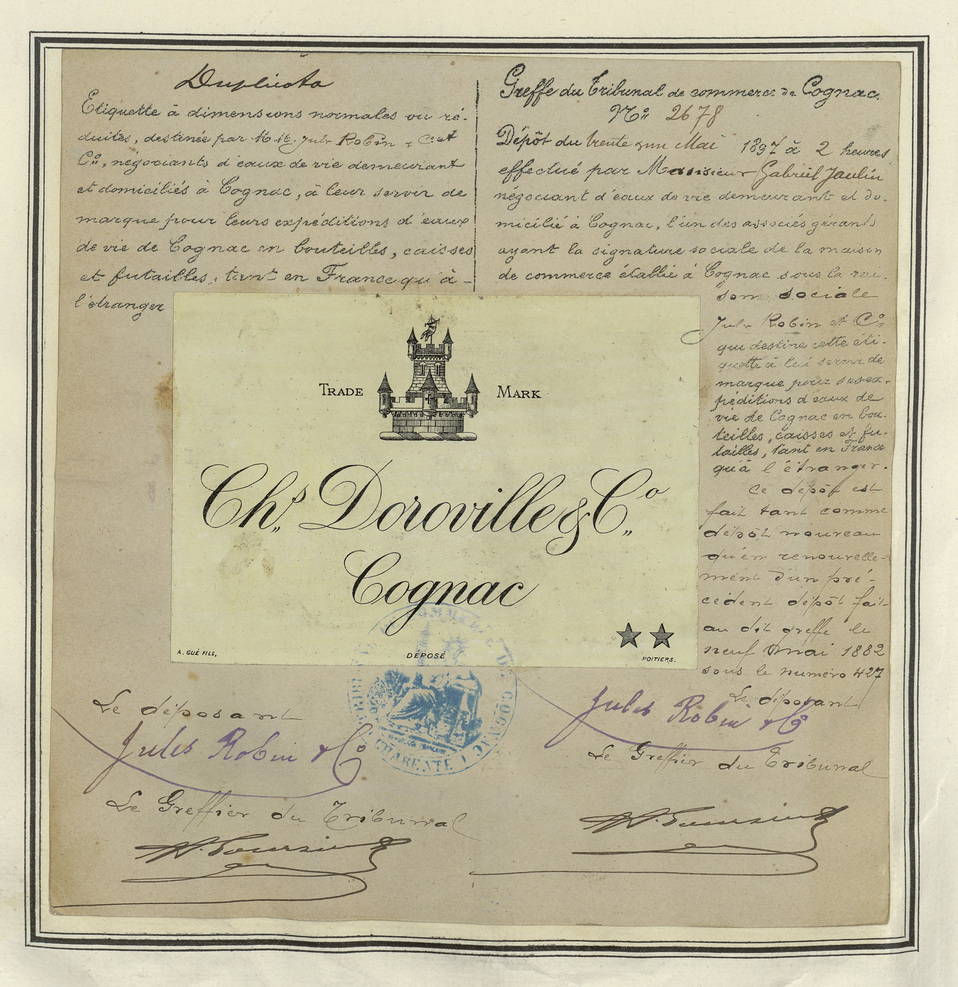 Duplicata
Etiquette à dimensions normales ou ré-
duites, destinée par M.M. Jules Robin & Cie et
Co, négociants d'eaux de vie demeurant
et domiciliés à Cognac, à leur servir de
marque pour leurs expéditions d'eaux
de vie de Cognac en bouteilles, caisses
et futailles, tant en France qu'à
l'étranger
Greffe du Tribunal de commerce de Cognac.
No 2678
Dépôt du trente un Mai 1897 à 2 heures
effectué par Monsieur Gabriel Jaulin
négociant d'eaux de vie demeurant et do-
micilié à Cognac, l'un des associés gérants
ayant la signature sociale de la maison
de commerce établie à Cognac sous la rai-
son sociale
Jules Robin et Co
qui destine cette éti-
quette à lui servir de
marque pour ses ex-
péditions d'eaux de
vie de Cognac en bou-
teilles, caisses et fu-
tailles, tant en France
qu'à l'étranger.
Ce dépôt est
fait tant comme
dépôt nouveau
qu'en renouvelle-
ment d'un pré-
cédent dépôt fait
au dit greffe le
neuf mai 1882
sous le numéro 427
TRADE MARK
Chs Doroville & Co
Cognac
A. GUÉ FILS, DÉPOSÉ POITIERS.
Le déposant
Jules Robin & Co
Le Greffier du Tribunal
Le déposant
Jules Robin & Co
Le Greffier du Tribunal
TRIBUNAL DE COMMERCE DE COGNAC
(CHARENTE)